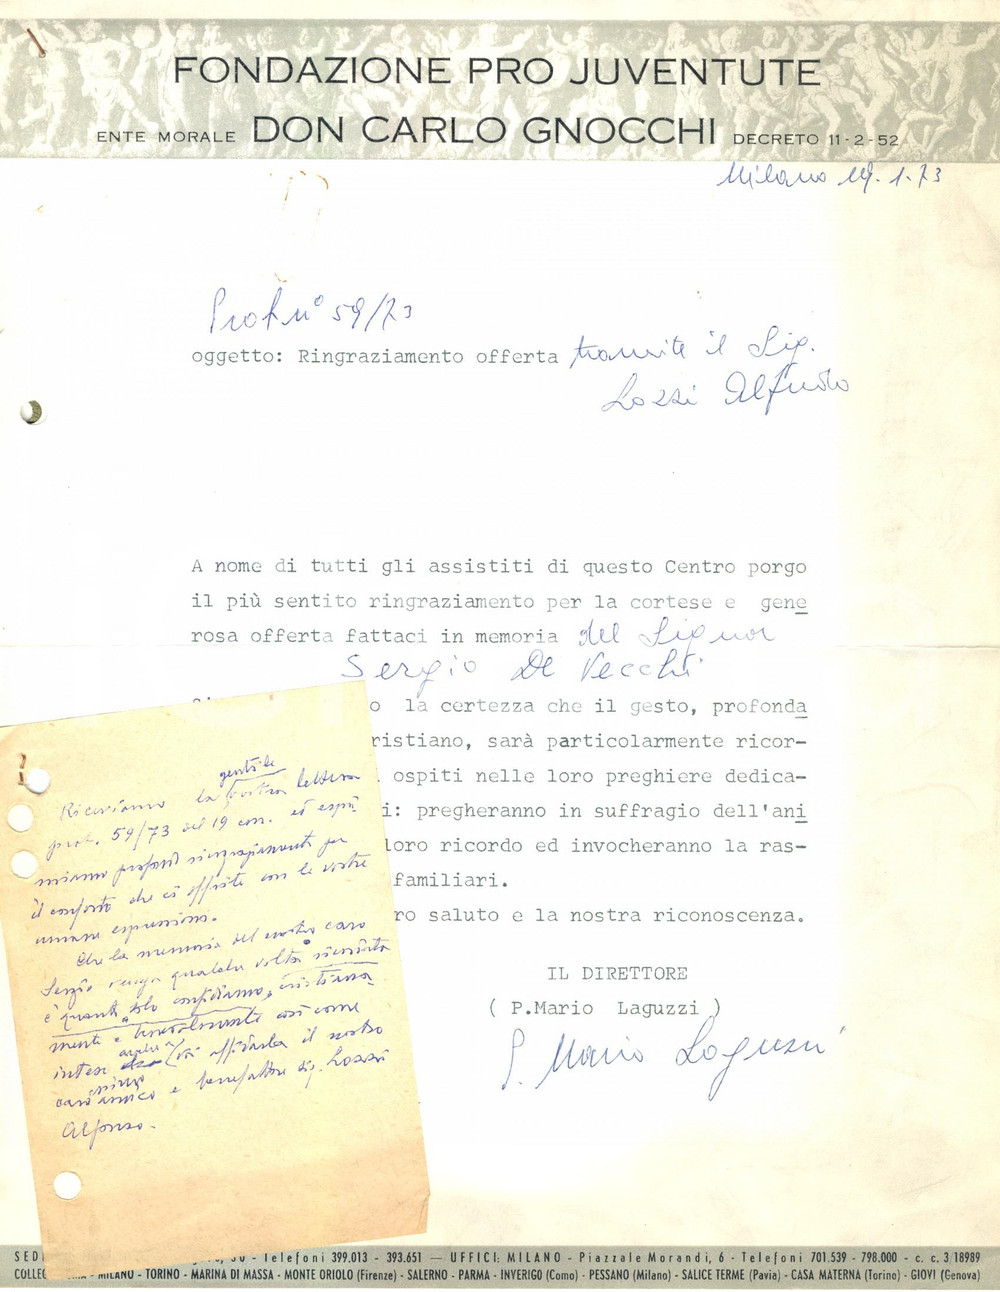 FONDAZIONE PRO JUVENTUTE
ENTE MORALE DON CARLO GNOCCHI DECRETO 11-2-52
Milano 19.1.73
Prot n° 59/73
oggetto: Ringraziamento offerta tramite il Sig.
Lozzi
A nome di tutti gli assistiti di questo Centro porgo
il più sentito ringraziamento per la cortese e gene
rosa offerta fattaci in memoria del Signor
Sergio De Vecchi
o la certezza che il gesto, profonda
ristiano, sarà particolarmente ricor-
ospiti nelle loro preghiere dedica-
i: pregheranno in suffragio dell'ani
loro ricordo ed invocheranno la ras-
familiari.
ro saluto e la nostra riconoscenza.
IL DIRETTORE
( P.Mario Laguzzi )
P. Mario Laguzzi
gentile
Riceviamo la vostra lettera
prot. 59/73 del 19 corr. ed espri
miamo profondi ringraziamenti per
il conforto che ci offrite con le vostre
umane espressioni.
Che la memoria del nostro caro
Sergio venga qualche volta ricordata
è quanto solo confidiamo, cristiana
mente e così come
intese affidarla il nostro
caro amico e benefattore sig. Lozzi
Alfonso.
SED - Telefoni 399.013 - 393.651 — UFFICI: MILANO - Piazzale Morandi, 6 - Telefoni 701.539 - 798.000 - c. c. 3 18989
COLLEG - MILANO - TORINO - MARINA DI MASSA - MONTE ORIOLO (Firenze) - SALERNO - PARMA - INVERIGO (Como) - PESSANO (Milano) - SALICE TERME (Pavia) - CASA MATERNA (Torino) - GIOVI (Genova)